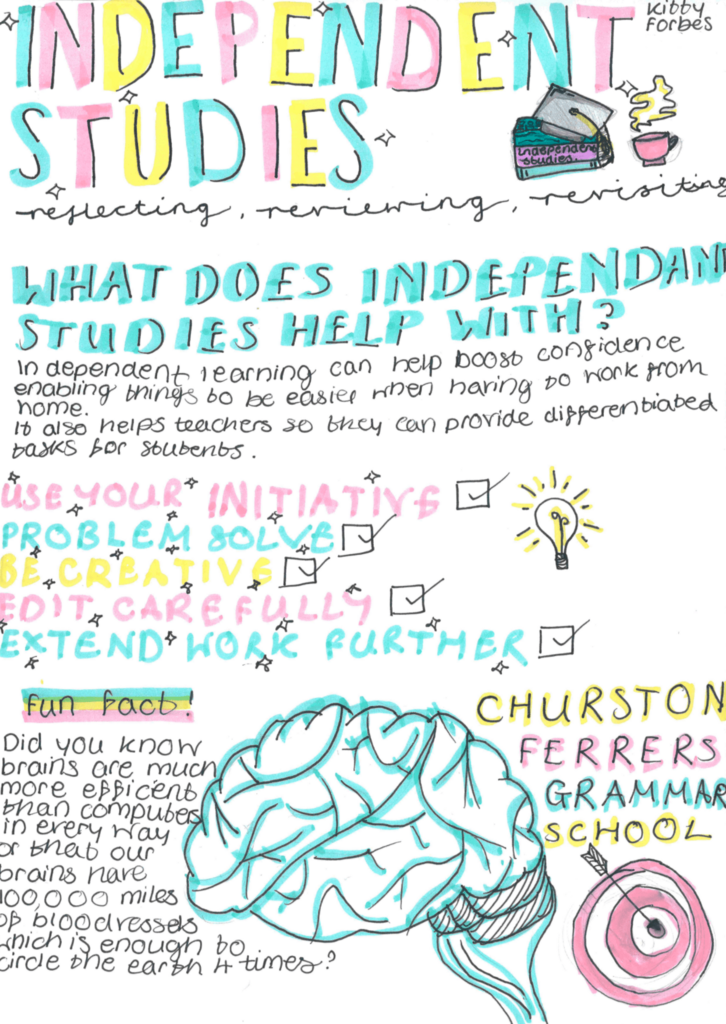 INDEPENDENT
Kitby
Forbes
STUDIES
independent
studies.
reflecting, reviewing, revisiting
WHAT DOES INDEPENDAN
STUDIES HELP WITH?
Independent learning can help boost confidence
enabling things to be easier when having to work from
home.
It also helps teachers so they can provide differentiated
tasks for students.
USE YOUR INITIATIVE
PROBLEM SOLVE
BE CREATIVE
EDIT CAREFULLY
EXTEND WORK FURTHER
fun fact!
CHURSTON
FERRERS
GRAMMAR
SCHOOL
Did you know
brains are much
more efficent
than computes
in every way
or that our
brains have
100,000 miles
of bloodvessels
which is enough to
circle the earth 4 times?